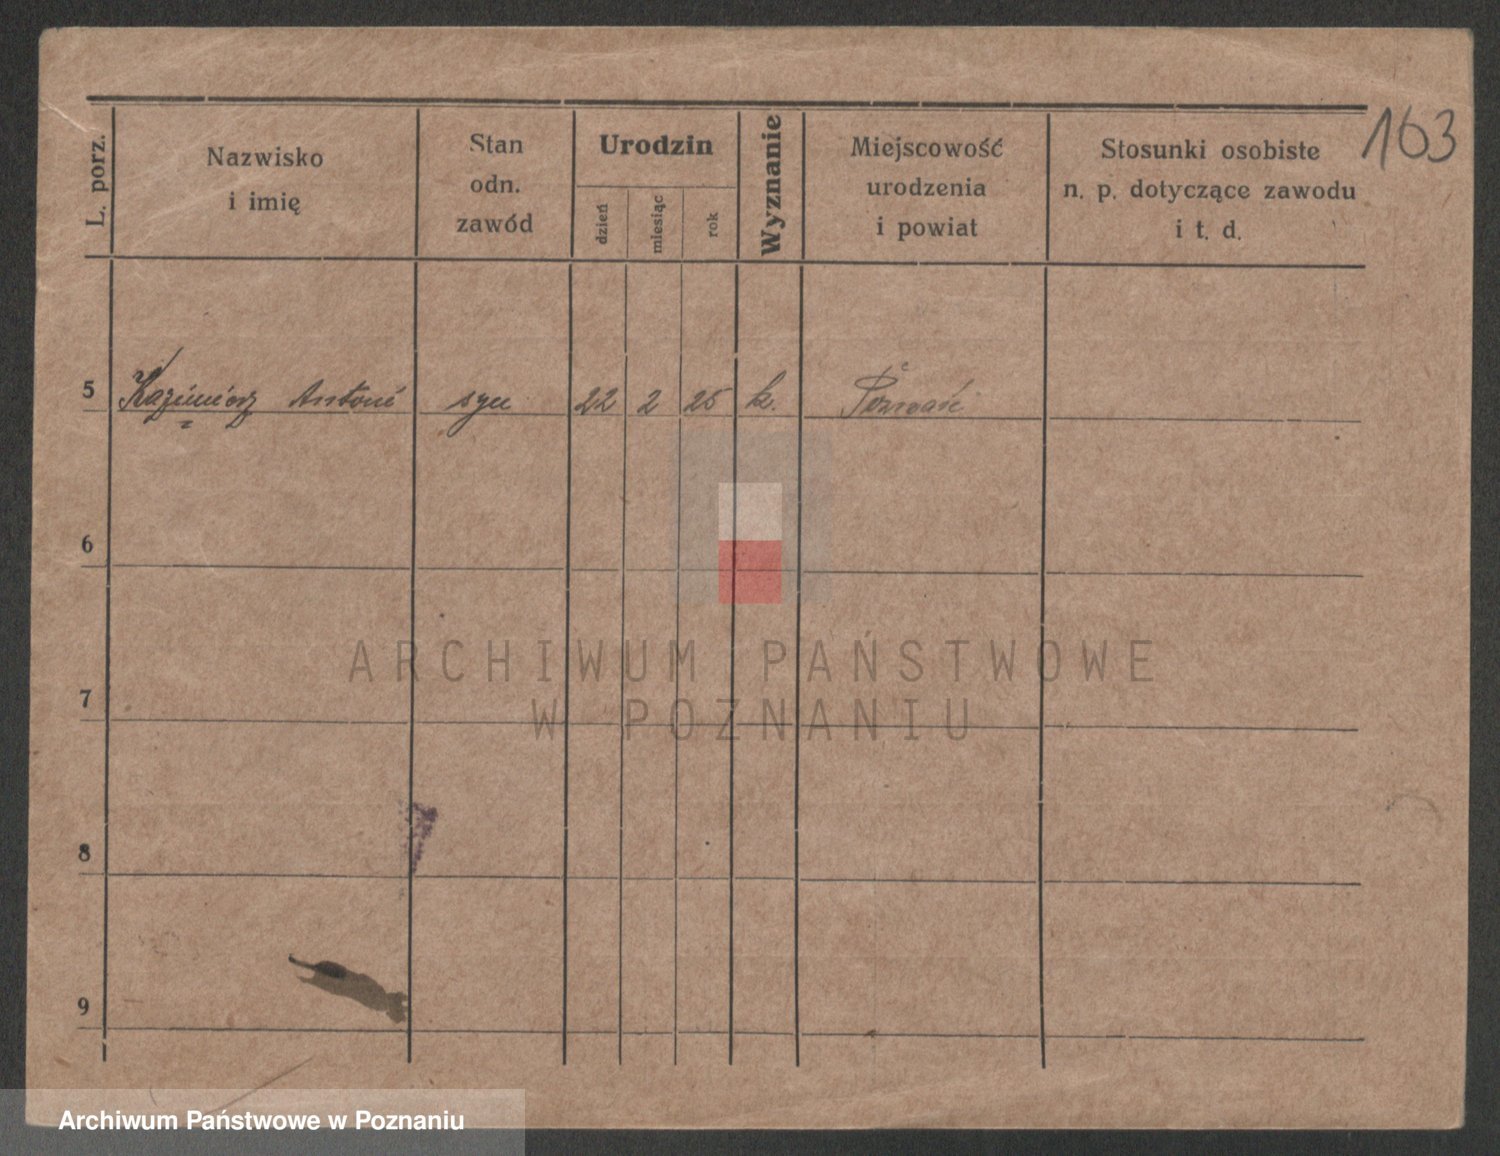 163
L. porz.
Nazwisko
i imię
Stan
odn.
zawód
Urodzin
dzień
miesiąc
rok
Wyznanie
Miejscowość
urodzenia
i powiat
Stosunki osobiste
n. p. dotyczące zawodu
i t. d.
5 Kazimierz Antoni syn 22 2 25 k. Poznań
6
7
8
9
ARCHIWUM PAŃSTWOWE
W POZNANIU
Archiwum Państwowe w Poznaniu